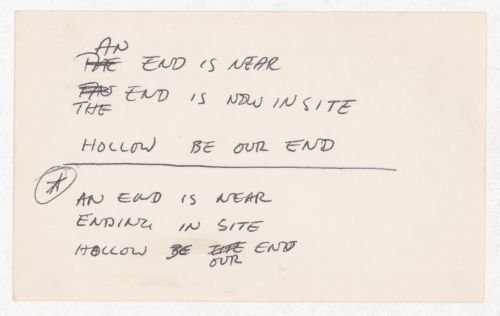 AN
THE END IS NEAR
THIS END IS NOW IN SITE
THE
HOLLOW BE OUR END
A
AN END IS NEAR
ENDING IN SITE
HOLLOW BE THE END
OUR